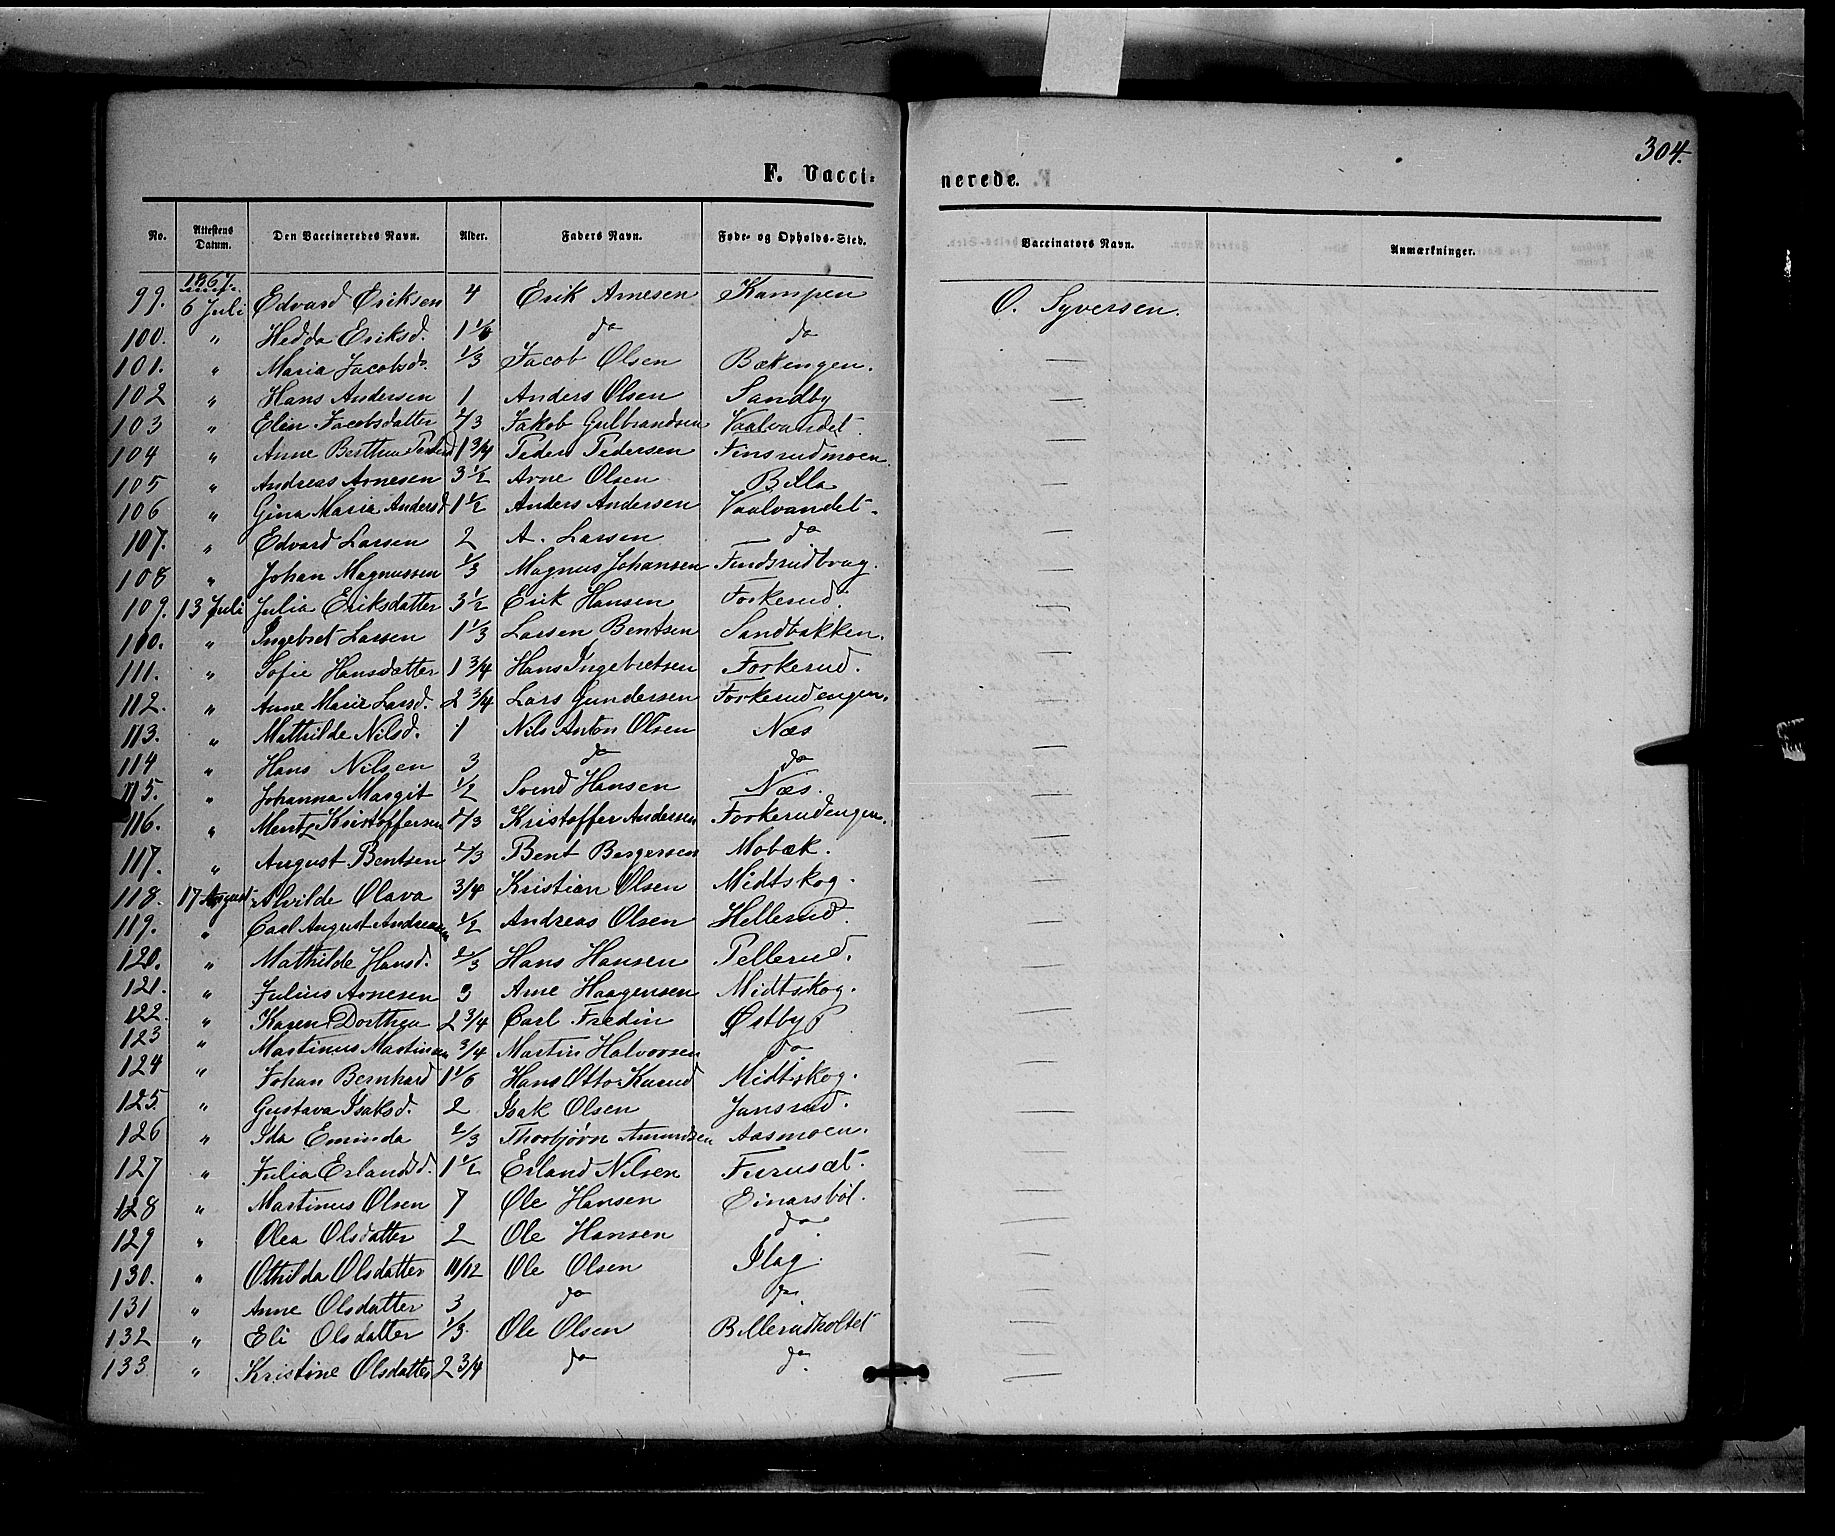 304.
F. Vacci- nerede.
No. Attestens Datum. Den Vaccineredes Navn. Alder. Faders Navn. Føde- og Opholds-Sted. Vaccinators Navn. Anmærkninger.
1867.
99. 6 Juli Edvard Eriksen 4 Erik Arnesen Kampen O. Syversen.
100. " Hedda Eriksd. 1 1/6 do do
101. " Maria Jacobsd. 1/3 Jacob Olsen Bækengen. —
102 " Hans Andersen 1 Anders Olsen Sandby —
103 " Elin Jacobsdatter 2/3 Jakob Gulbrandsen Vaalvandet. —
104 " Anne Berthea 1 3/4 Peder Pedersen Finsrudmoen. —
105 " Andreas Arnesen 3 1/2 Arne Olsen Billa —
106 " Gina Maria Andersd 1 1/2 Anders Andersen Vaalvandet. —
107. " Edvard Larsen 2 A. Larsen — do —
108 " Johan Magnussen 1/3 Magnus Johansen Findsrudbrag. —
109. 13 Juli Julia Eriksdatter 3 1/2 Erik Hansen Forkerud. —
110. " Ingebret Larsen 1 1/3 Larsen Bentsen Sandbakken. —
111. " Sofie Hansdatter 1 3/4 Hans Ingebretsen Forkerud. —
112. " Anne Marie Larsd. 2 3/4 Lars Gundersen Forkerudengen. —
113. " Mathilde Nilsd. 1 Nils Anton Olsen Næs —
114 " Hans Nilsen 3 do do —
115. " Johanna Margit 1/2 Svend Hansen Næs. —
116. " Mentz Kristoffersen 2/3 Kristoffer Andersen Forkerudengen. —
117. " August Bentsen 2/3 Bent Bergersen Mobæk. —
118. 17 August Alvilde Olava 3/4 Kristian Olsen Midtskog. —
119. " Carl August Andreasen 1/2 Andreas Olsen Hellerud. —
120. " Mathilde Hansd. 2/3 Hans Hansen Pellerud. —
121. " Julius Arnesen 3 Arne Haagensen Midtskog. —
122. " Karen Dorthea 2 3/4 Carl Fredin Østby —
123 " Martinus Martinsen 3/4 Martin Halvorsen do —
124 " Johan Bernhard 1 1/6 Hans Otto Kurud Midtskog. —
125. " Gustava Isaksd. 2 Isak Olsen Jansrud. —
126 " Ida Eminda 2/3 Thorbjørn Amundsen Aasmoen. —
127 " Julia Erlandsd. 1 1/2 Erland Nilsen Furusæt. —
128 " Martinus Olsen 7 Ole Hansen Einarsböl. —
129 " Olea Olsdatter 2 Ole Hansen do —
130. " Othilda Olsdatter 11/12 Ole Olsen Flag. —
131 " Anne Olsdatter 3 do do —
132 " Eli Olsdatter 1/3 Ole Olsen Billerudholtet —
133 " Kristine Olsdatter 2 3/4 do do —